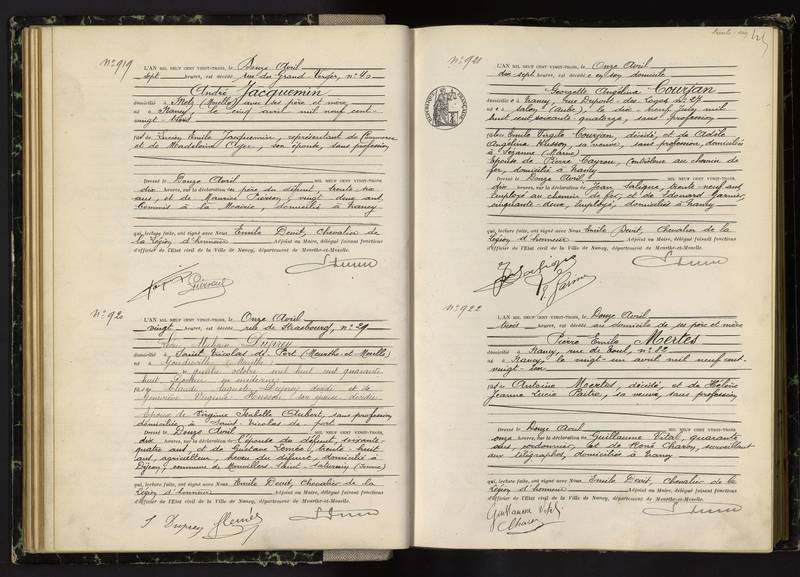 N° 919
L'AN MIL NEUF CENT VINGT-TROIS, le Douze Avril
sept heures, est décédé rue du Grand Verger, n° 40
André Jacquemin
domicilié à Metz (Moselle) avec ses père et mère
né à Nancy, le cinq avril mil neuf cent
vingt trois
fils de Lucien Emile Jacquemin, représentant de Commerce
et de Madeleine son épouse, sans profession
Dressé le Douze Avril MIL NEUF CENT VINGT-TROIS,
dix heures, sur la déclaration du père du défunt, trente six
ans, et de Maurice Pierson, vingt deux ans,
Commis à la Mairie, domiciliés à Nancy
qui, lecture faite, ont signé avec Nous Emile Devit, Chevalier de
la Légion d'honneur Adjoint au Maire, délégué faisant fonctions
d'Officier de l'Etat civil de la Ville de Nancy, département de Meurthe-et-Moselle.
N° 920
L'AN MIL NEUF CENT VINGT-TROIS, le Onze Avril
vingt heures, est décédé rue de Strasbourg, n° 29
Duprey
domicilié à Saint Nicolas de Port (Meurthe-et-Moselle)
né à Gondreville
quatre octobre mil huit cent quarante
huit
fils de Claude Duprey décédé et de
Virginie son épouse décédée
Epoux de Virginie Isabelle Aubert, sans profession
domiciliée à Saint Nicolas de port
Dressé le Douze Avril MIL NEUF CENT VINGT-TROIS,
dix heures, sur la déclaration de l'épouse du défunt, soixante
quatre ans, et de Gustave trente huit
ans, agriculteur, neveu du défunt, domicilié à
commune de Saint
qui, lecture faite, ont signé avec Nous Emile Devit, Chevalier de la
Légion d'honneur Adjoint au Maire, délégué faisant fonctions
d'Officier de l'Etat civil de la Ville de Nancy, département de Meurthe-et-Moselle.
Duprey
N° 921
L'AN MIL NEUF CENT VINGT-TROIS, le Onze Avril
dix-sept heures, est décédée en son domicile
Georgette Angelina Courjan
domiciliée à Nancy, rue Dupont des Loges n° 27
née à (Aube), le dix neuf mil
huit cent soixante quatorze, sans profession
fille de Emile Virgile Courjan, décédé, et de Adèle
Angelina Husson, sa veuve, sans profession, domiciliée
à Sézanne (Marne)
Epouse de Pierre Cayrou, Contrôleur au chemin de
fer, domicilié à Nancy
Dressé le Douze Avril MIL NEUF CENT VINGT-TROIS,
dix heures, sur la déclaration de Jean Saligue, trente neuf ans
Employé au chemin de fer, et de Edouard Garnier,
cinquante-deux, Employé, domiciliés à Nancy
qui, lecture faite, ont signé avec Nous Emile Devit, Chevalier de la
Légion d'honneur Adjoint au Maire, délégué faisant fonctions
d'Officier de l'Etat civil de la Ville de Nancy, département de Meurthe-et-Moselle.
N° 922
L'AN MIL NEUF CENT VINGT-TROIS, le Douze Avril
trois heures, est décédé au domicile de ses père et mère
Pierre Emile Mertes
domicilié à Nancy, rue de Toul, n° 62
né à Nancy, le vingt-un avril mil neuf cent
vingt-un
fils de Antoine Mertes, décédé, et de Hélène
Jeanne Lucie sa veuve, sans profession
Dressé le Douze Avril MIL NEUF CENT VINGT-TROIS,
onze heures, sur la déclaration de Guillaume Vital, quarante
ans, cordonnier, et de René Charoy, surveillant
aux télégraphes, domiciliés à Nancy
qui, lecture faite, ont signé avec Nous Emile Devit, Chevalier de la
Légion d'honneur Adjoint au Maire, délégué faisant fonctions
d'Officier de l'Etat civil de la Ville de Nancy, département de Meurthe-et-Moselle.
Guillaume Vital
Charoy